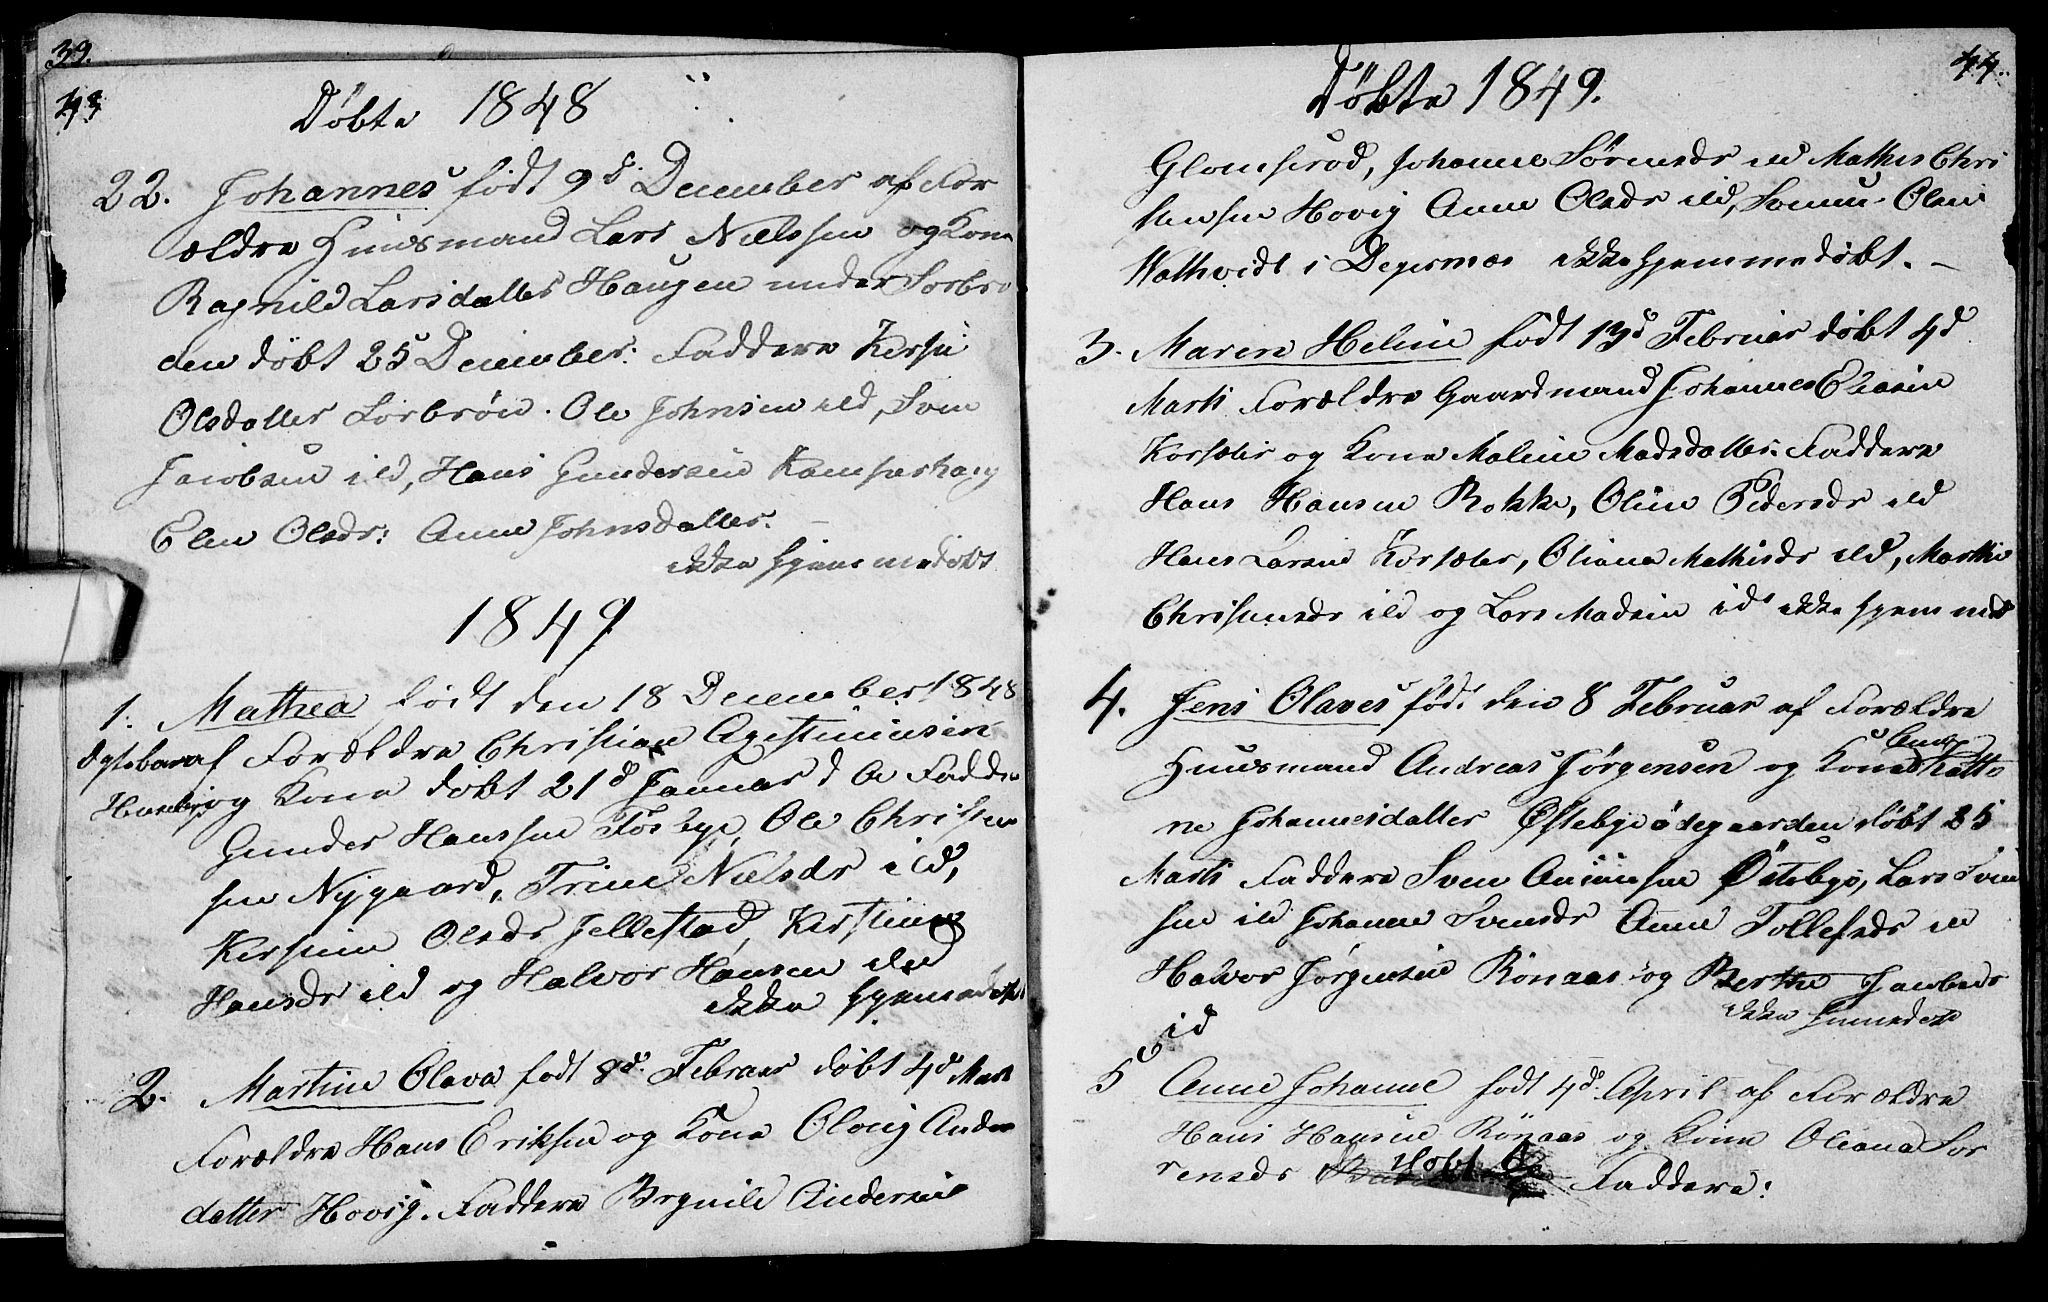 39.
43
Døbte 1848
22. Johannes født 9d December af For
ældre Huusmand Lars Nielssen og Kone
Ragnild Larsdatter Haugen under Sorbrø
den døbt 25 December: Faddere Kersti
Olsdatter Sorbrøn. Ole Johnsen ibd, Sven
Jacobsen ibd, Hans Gundersen
Elen Olsdr: Anne Johnsdatter. —
ikke hjemmedøbt
1849
1. Mathea født den 18 December 1848
af Forældre Christian Agustinusen
og Kone døbt 21d Januar d A Fadde
Gunder Hanssen Fosbye, Ole Christen
sen Nygaard, Trine Nielsdr ibd,
Kerstine Olsdr Jellestad, Kirstine
Hansdr ibd og Halvor Hansen ibd
ikke hjemmedøbt
2. Martine Olava født 8d. Februar døbt 4d Marts
Forældre Hans Eriksen og Kone Oloug Anders
datter Hovig. Faddere Brynild Andersen
44.
Døbte 1849.
Glomsrød, Johanne Sørensdr ibd Mathis Chri
stensen Hovig Anne Olsdr ibd, Olsen
i Degernæs ikke hjemmedøbt. —
3. Maren Heline født 13d Februar døbt 4d
Marts Forældre Gaardmand Johannes Eliasen
Korsæter og Kone Maline Madsdatter. Faddere
Hans Hansen Rokke, Oline Pedersdr ibd
Hans Larsen Korsæter, Oliana Mathisdr ibd, Marthe
Christensdr ibd og Lars Madsen ibd ikke hjemmed
4. Jens Olaves født den 8 Februar af Forældre
Huusmand Andreas Jørgensen og Kone
ne Johannesdatter Østebye ødegaarden døbt 25
Marts Faddere Sven Østebye, Lars Sven
sen ibd Johanne Svensdr Anne Tollefsdr ibd
Halvor Jørgensen Rønaas og Berthe Jacobsdr
ikke hjemmedøbt
id
5 Anne Johanne født 4d. April af Forældre
Hans Hansen Rønaas og Kone Oliana Sør
rensdr døbt Faddere: